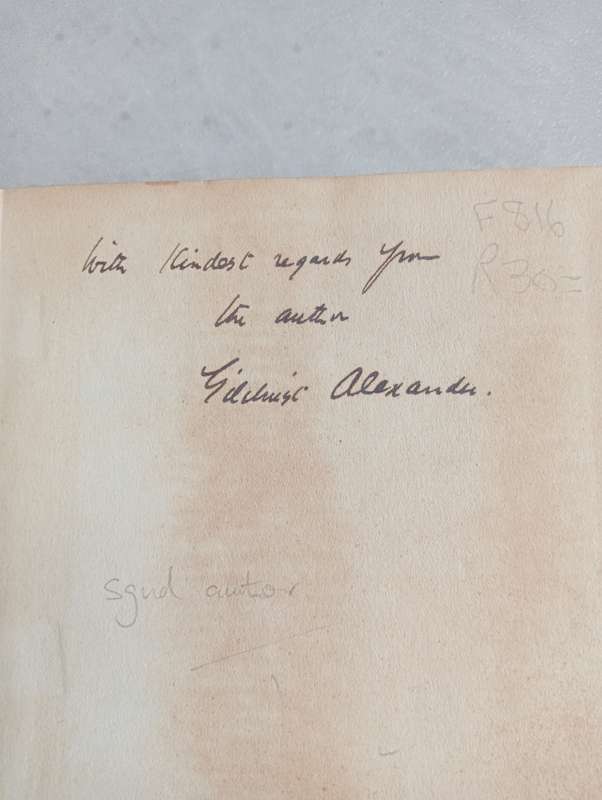 F 816
R30=
With Kindest regards from
the author
Gilchrist Alexander.
sgnd author